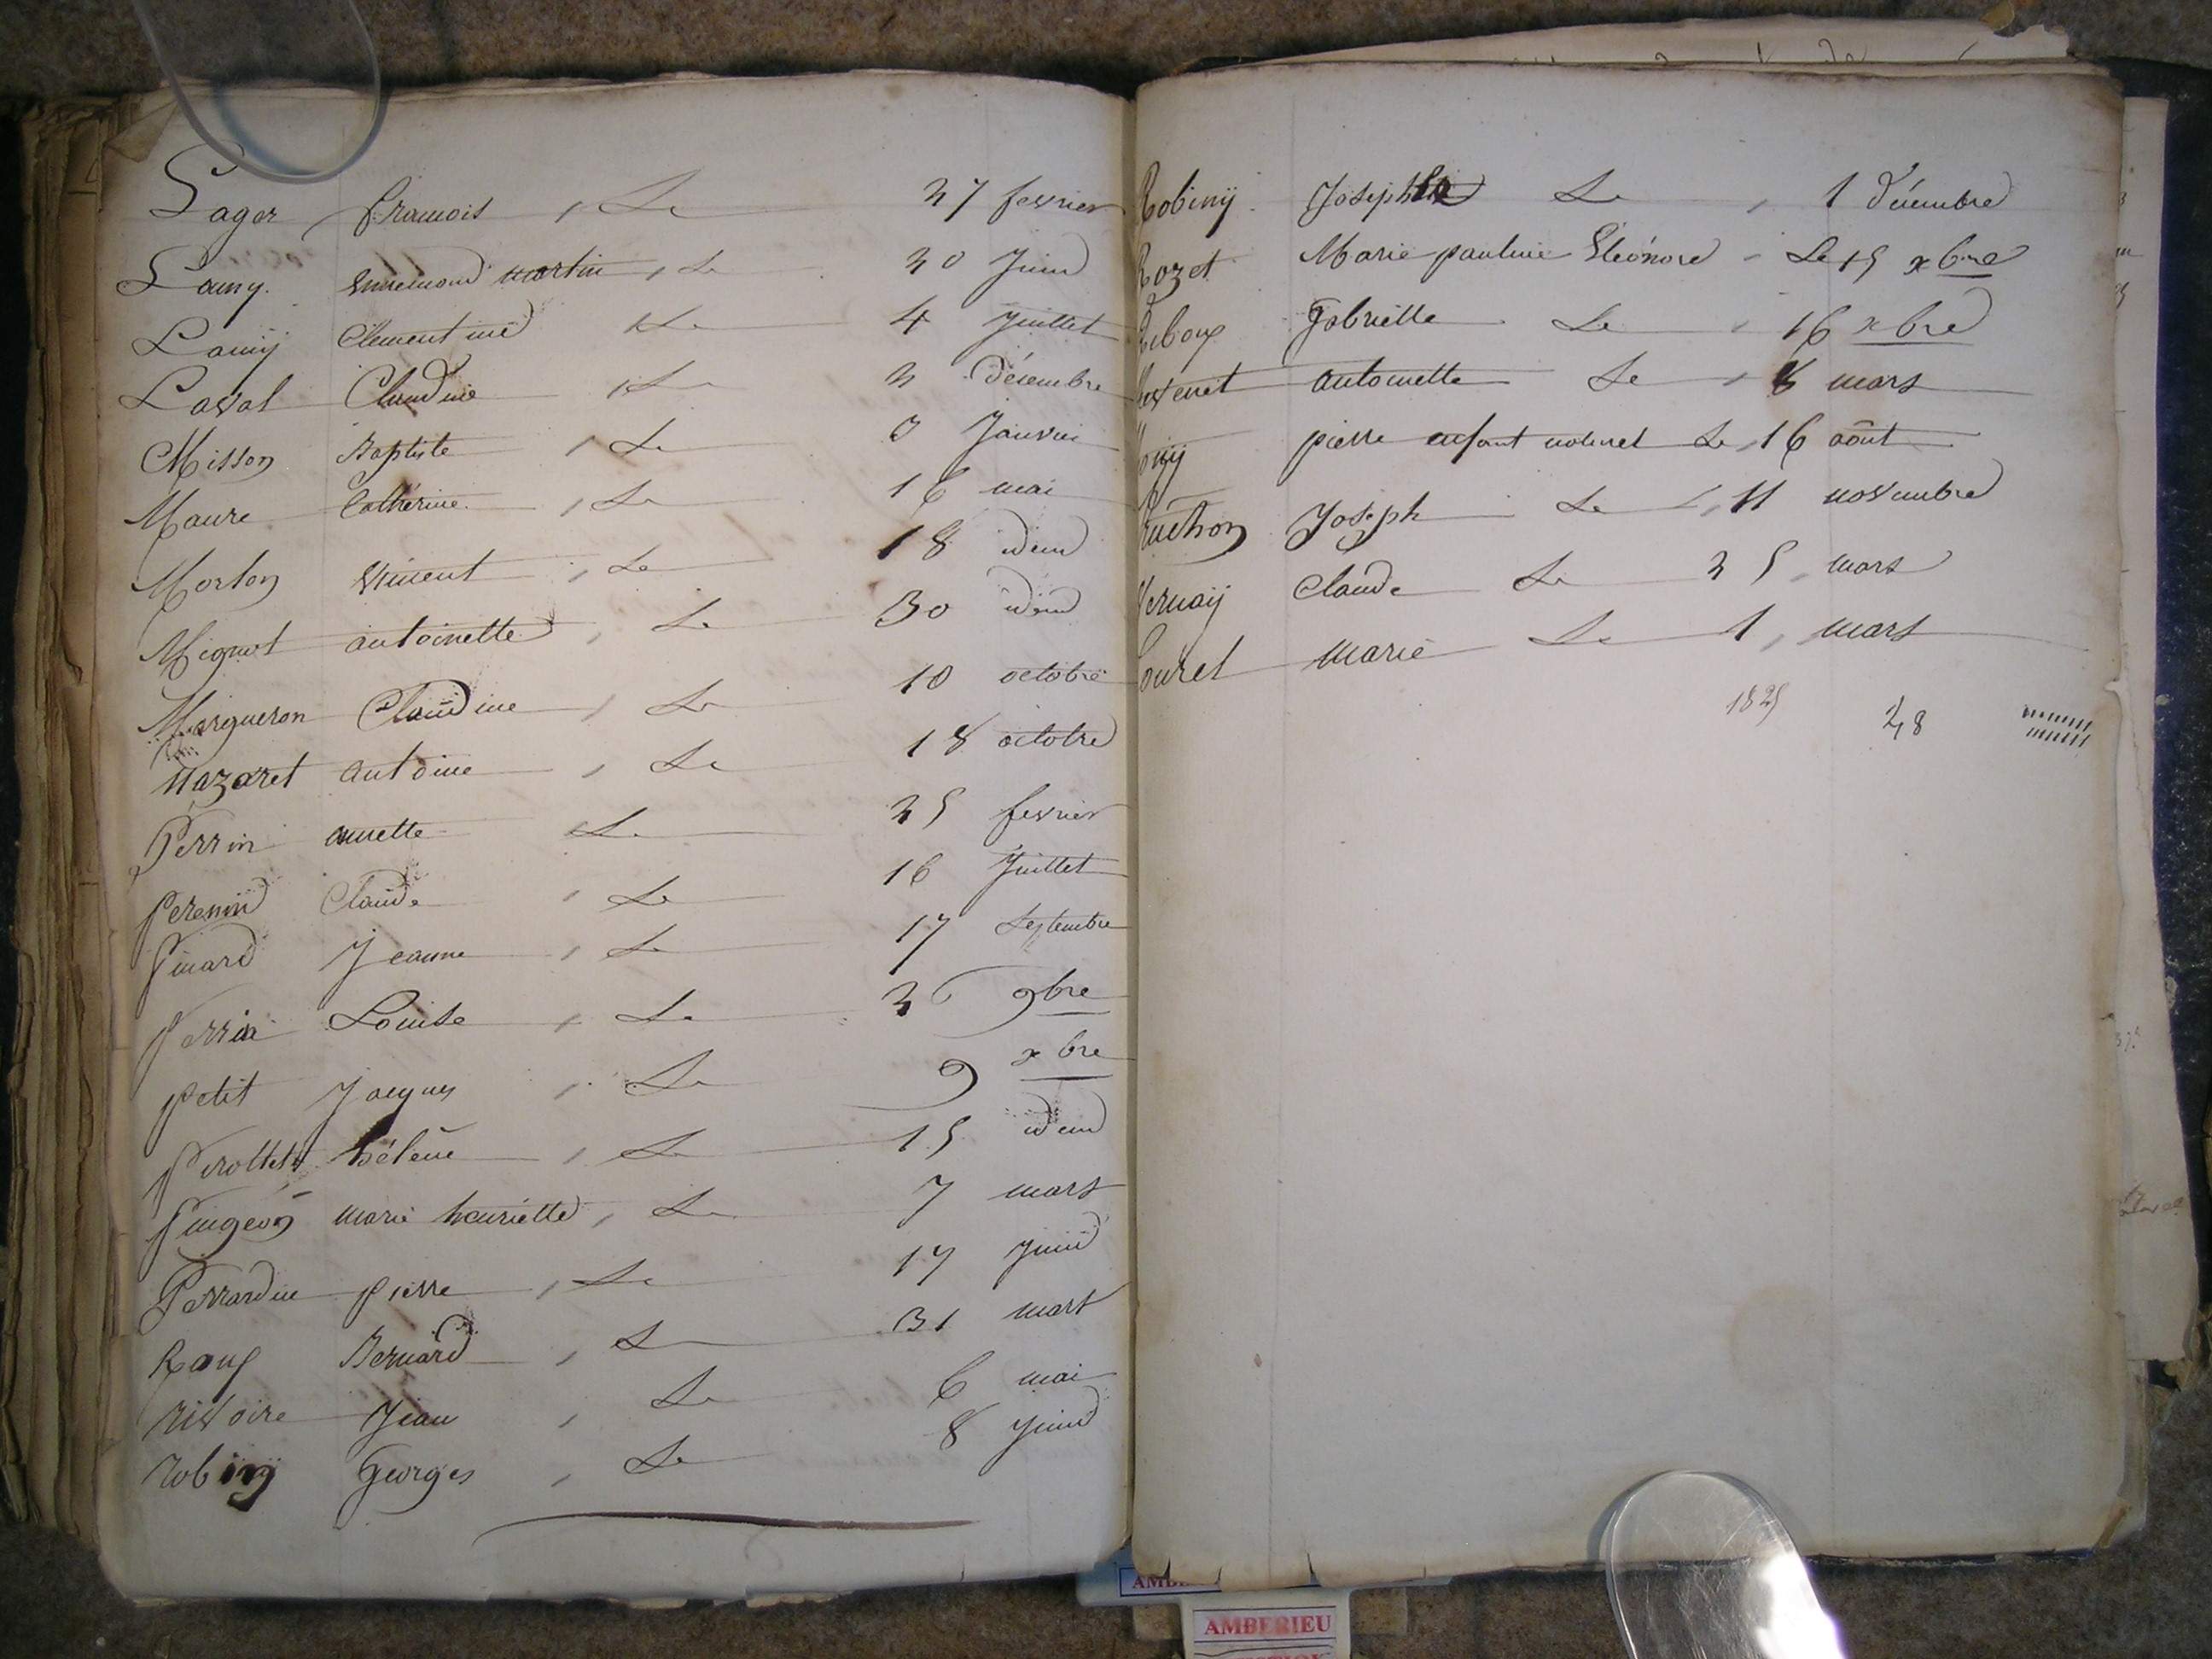 Lager françois, Le 27 fevrier
Lamy. Ennemond martin, Le 20 Juin
Lamÿ Clementine Le 4 Juillet
Laval Claudine Le 2 décembre
Misson Baptiste, Le 3 Janvier
Maure Catherine, Le 16 mai
Morlon Vincent, Le 18 idem
Mignot antoinette, Le 30 idem
Margueron Claudine, Le 10 octobre
Nazaret antoine, Le 18 octobre
Perrin annette Le 25 fevrier
Perenin Claude, Le 16 Juillet
Pinard Jeanne, Le 17 Septembre
Perrin Louise, Le 26 9bre
Petit Jacques, Le 9 xbre
Perottet hélène, Le 15 idem
Pingeon marie henriette, Le 7 mars
Perrardin pierre, Le 17 Juin
Roux Bernard, Le 31 mars
Rivoire Jean, Le 6 mai
Robinÿ Georges, Le 8 Juin
Robinÿ Joseph Le 1 décembre
Rozet Marie pauline Eléonore Le 15 xbre
Reboux Gabrielle Le 16 xbre
antoinette Le 8 mars
pierre enfant naturel Le 16 août
Joseph Le 11 novembre
Vernaÿ Claude Le 25 mars
marie Le 1, mars
1825
48
AMBERIEU